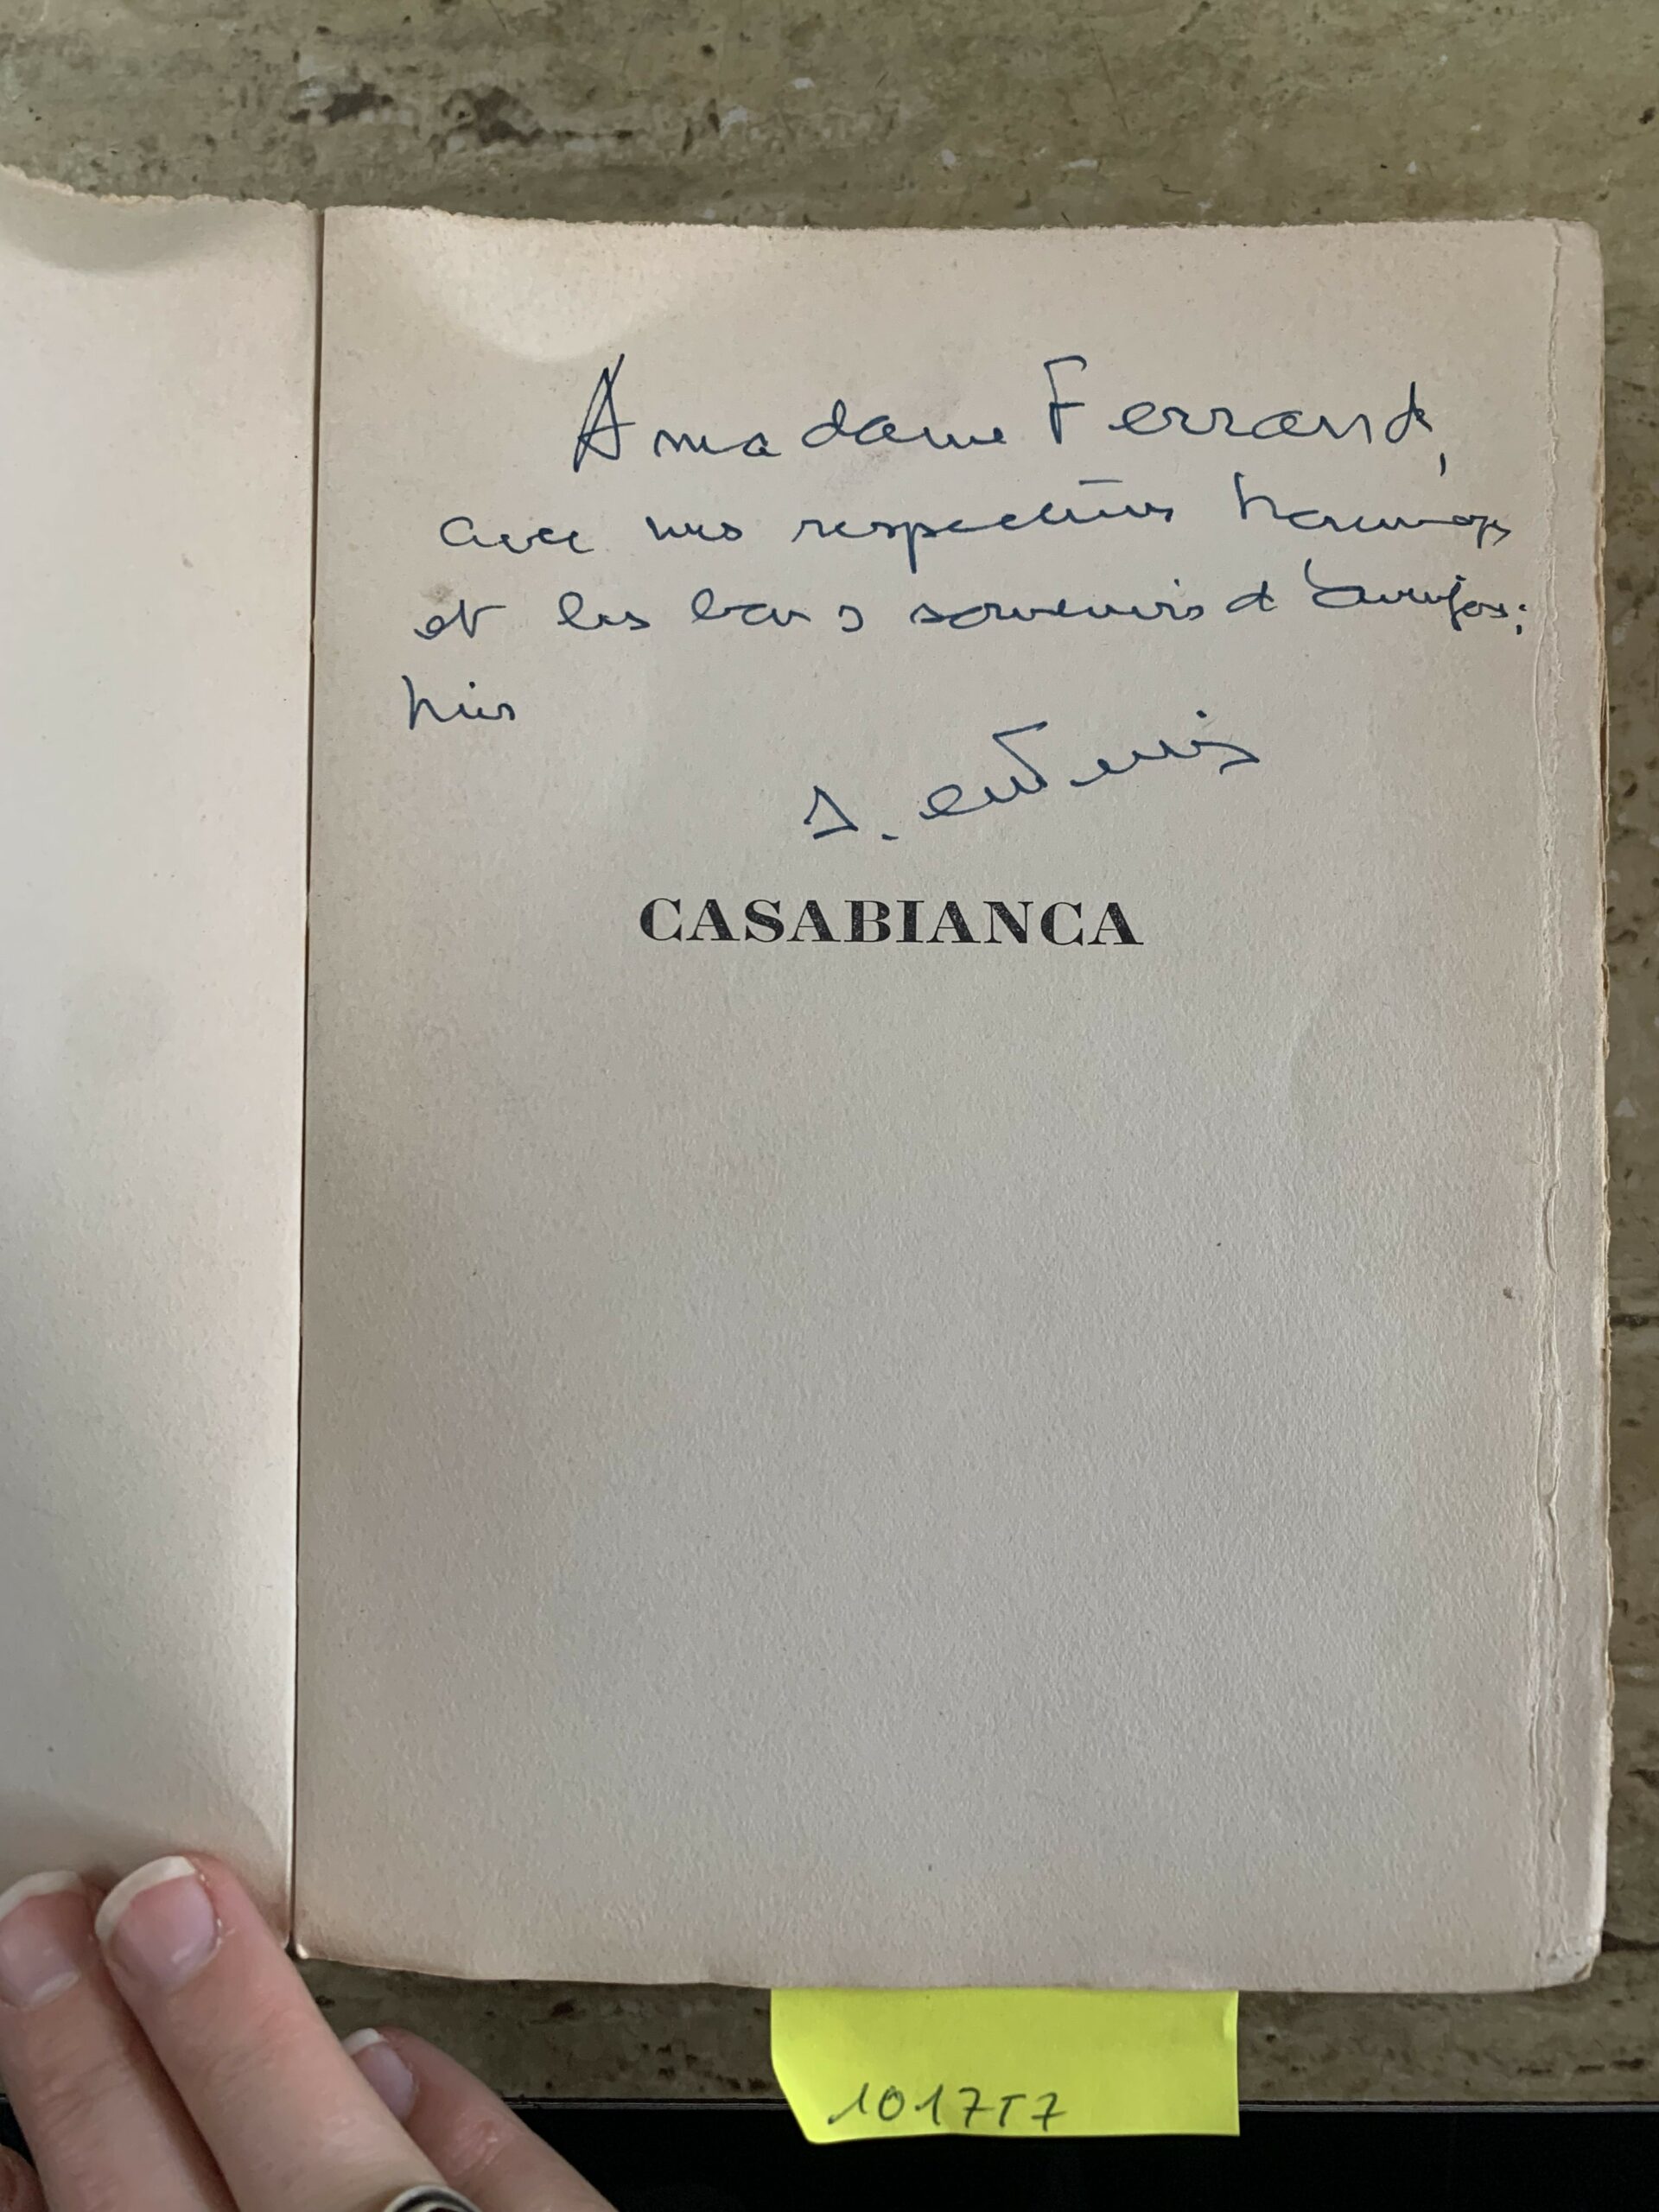 A madame Ferrand,
avec mes respectueux hommages
et les bons souvenirs
CASABIANCA
1017T7